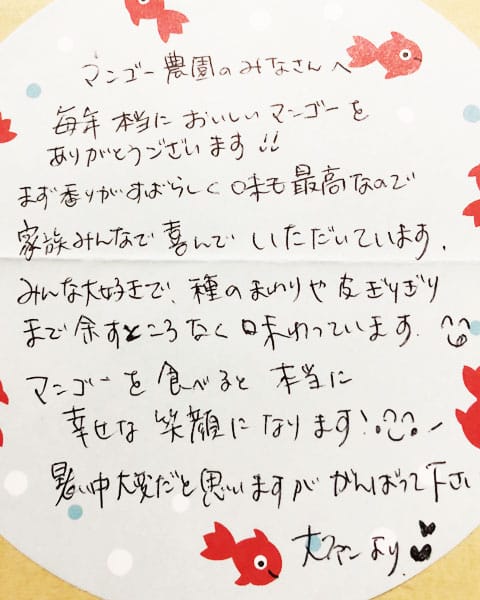 マンゴー農園のみなさんへ
毎年 本当に おいしい マンゴーを
ありがとうございます!!
まず香りがすばらしく 味も最高なので
家族みんなで 喜んで いただいています.
みんな大好きで、種のまわりや皮ぎりぎり
まで余すところなく 味わっています.
マンゴーを 食べると 本当に
幸せな 笑顔になります!
暑い中大変だと思いますが がんばって下さい
大ファンより.